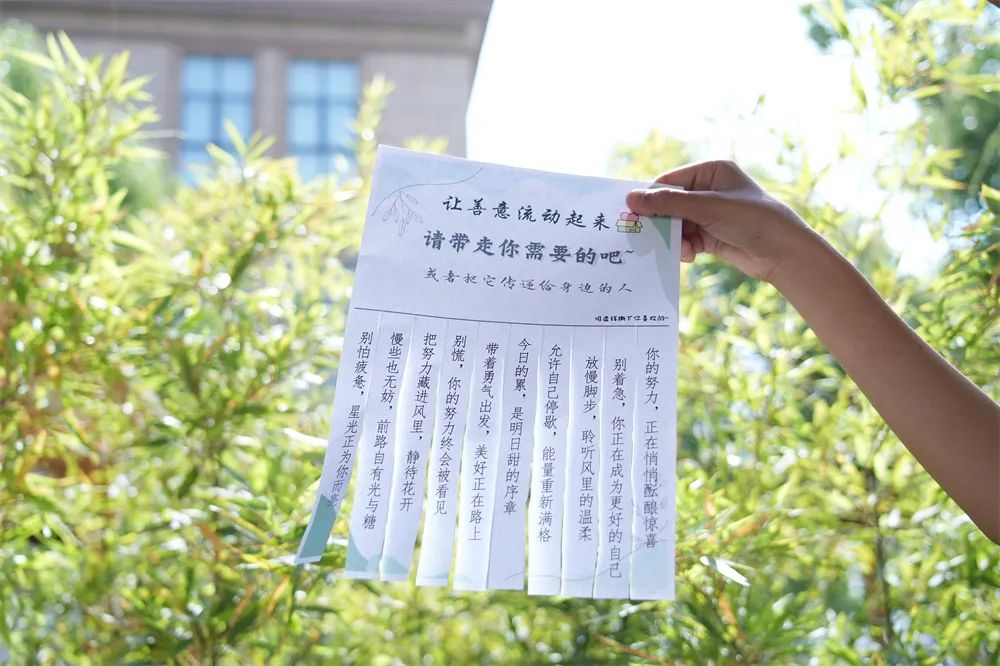 让善意流动起来
请带走你需要的吧~
或者把它传递给身边的人
沿虚线撕下你喜欢的~
别怕疲惫，星光正为你而亮
慢些也无妨，前路自有光与糖
把努力藏进风里，静待花开
别慌，你的努力终会被看见
带着勇气出发，美好正在路上
今日的累，是明日甜的序章
允许自己停歇，能量重新满格
放慢脚步，聆听风里的温柔
别着急，你正在成为更好的自己
你的努力，正在悄悄酝酿惊喜